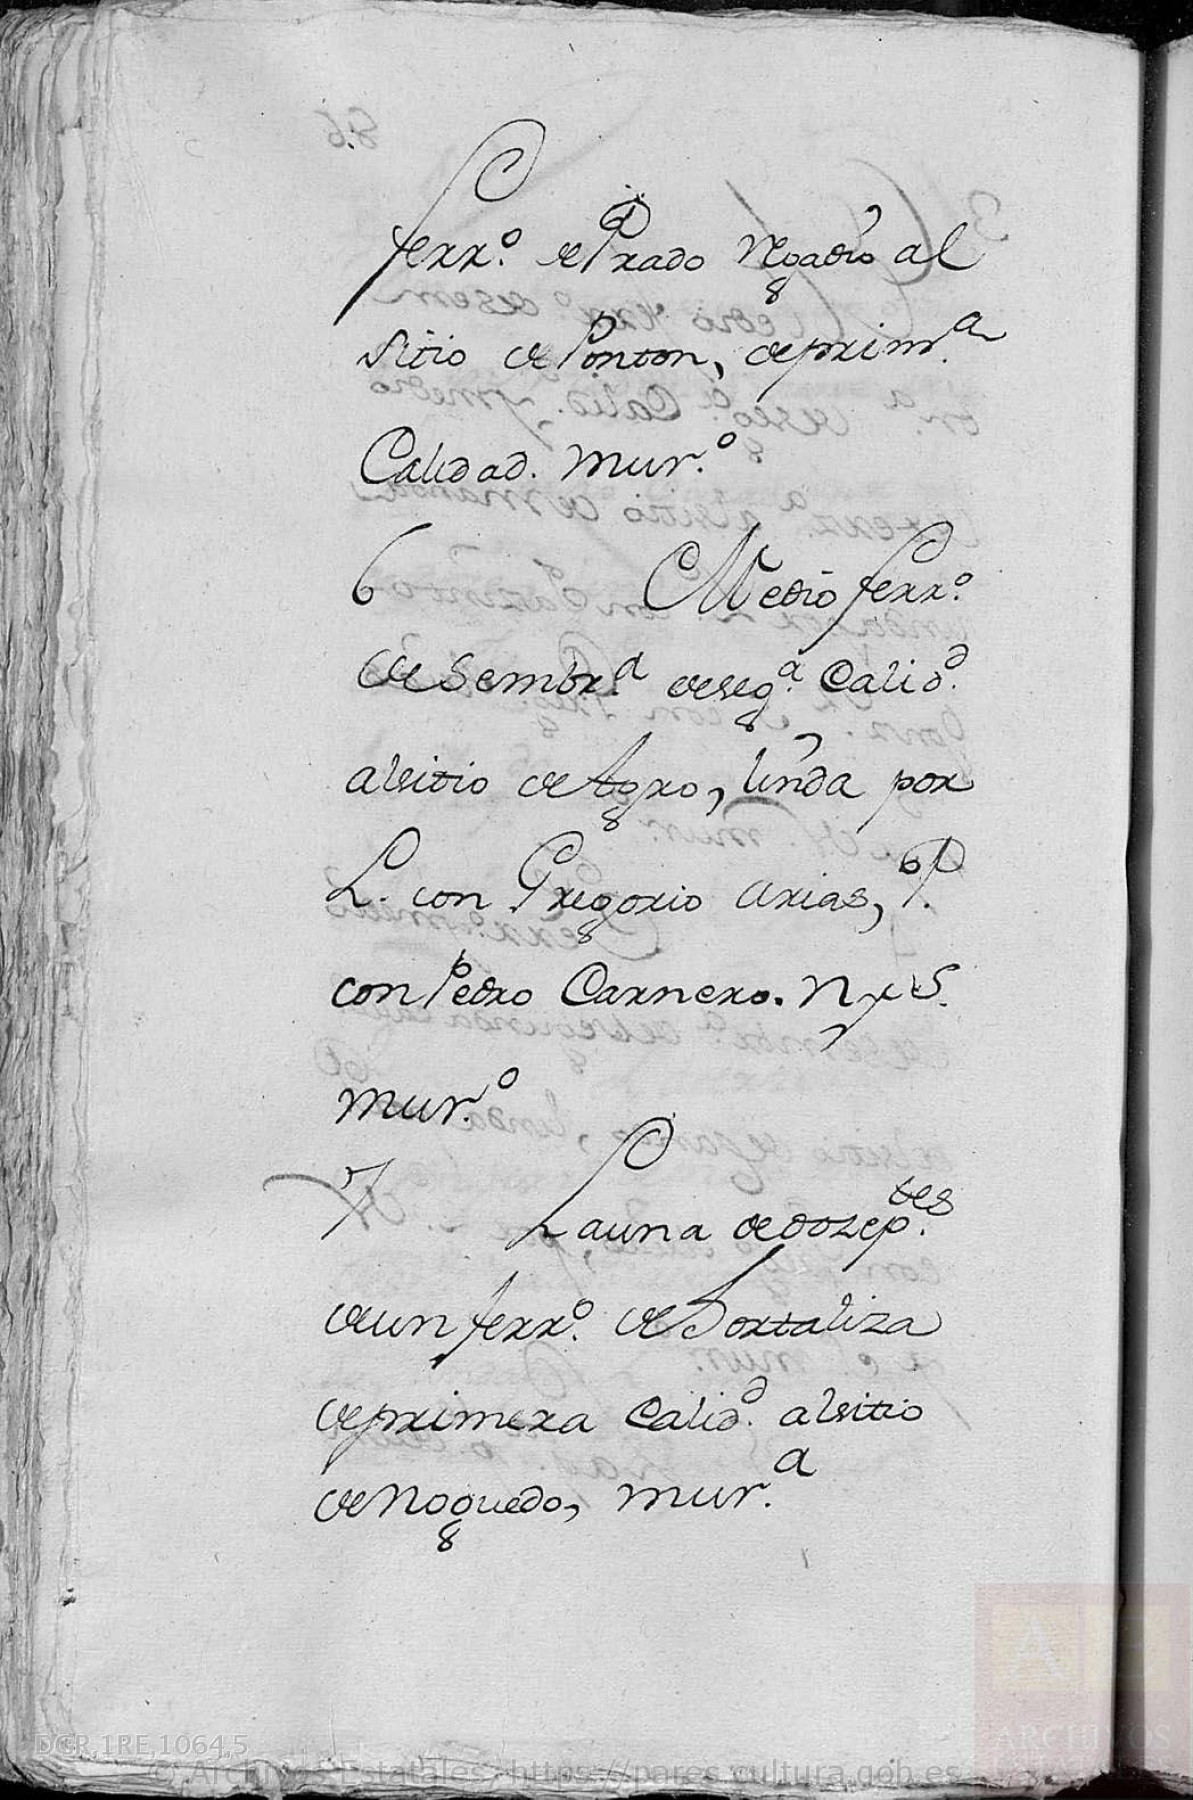 ferr.º de Prado Regadio al
sitio de Ponton, de prim.ª
Calidad. mur.º
6 Medio ferr.º
de Sembr.ª de seg.ª Calid.d
al sitio de Agro, linda por
L. con Gregorio Arias, P.
con Pedro Carnero. N y S.
mur.º
7 La una de doze p.tes
de un ferr.º de Hortaliza
de primera Calid.d al sitio
de Noguedo, mur.ª
DGR,1RE,1064,5
© Archivos Estatales, https://pares.cultura.gob.es
ARCHIVOS